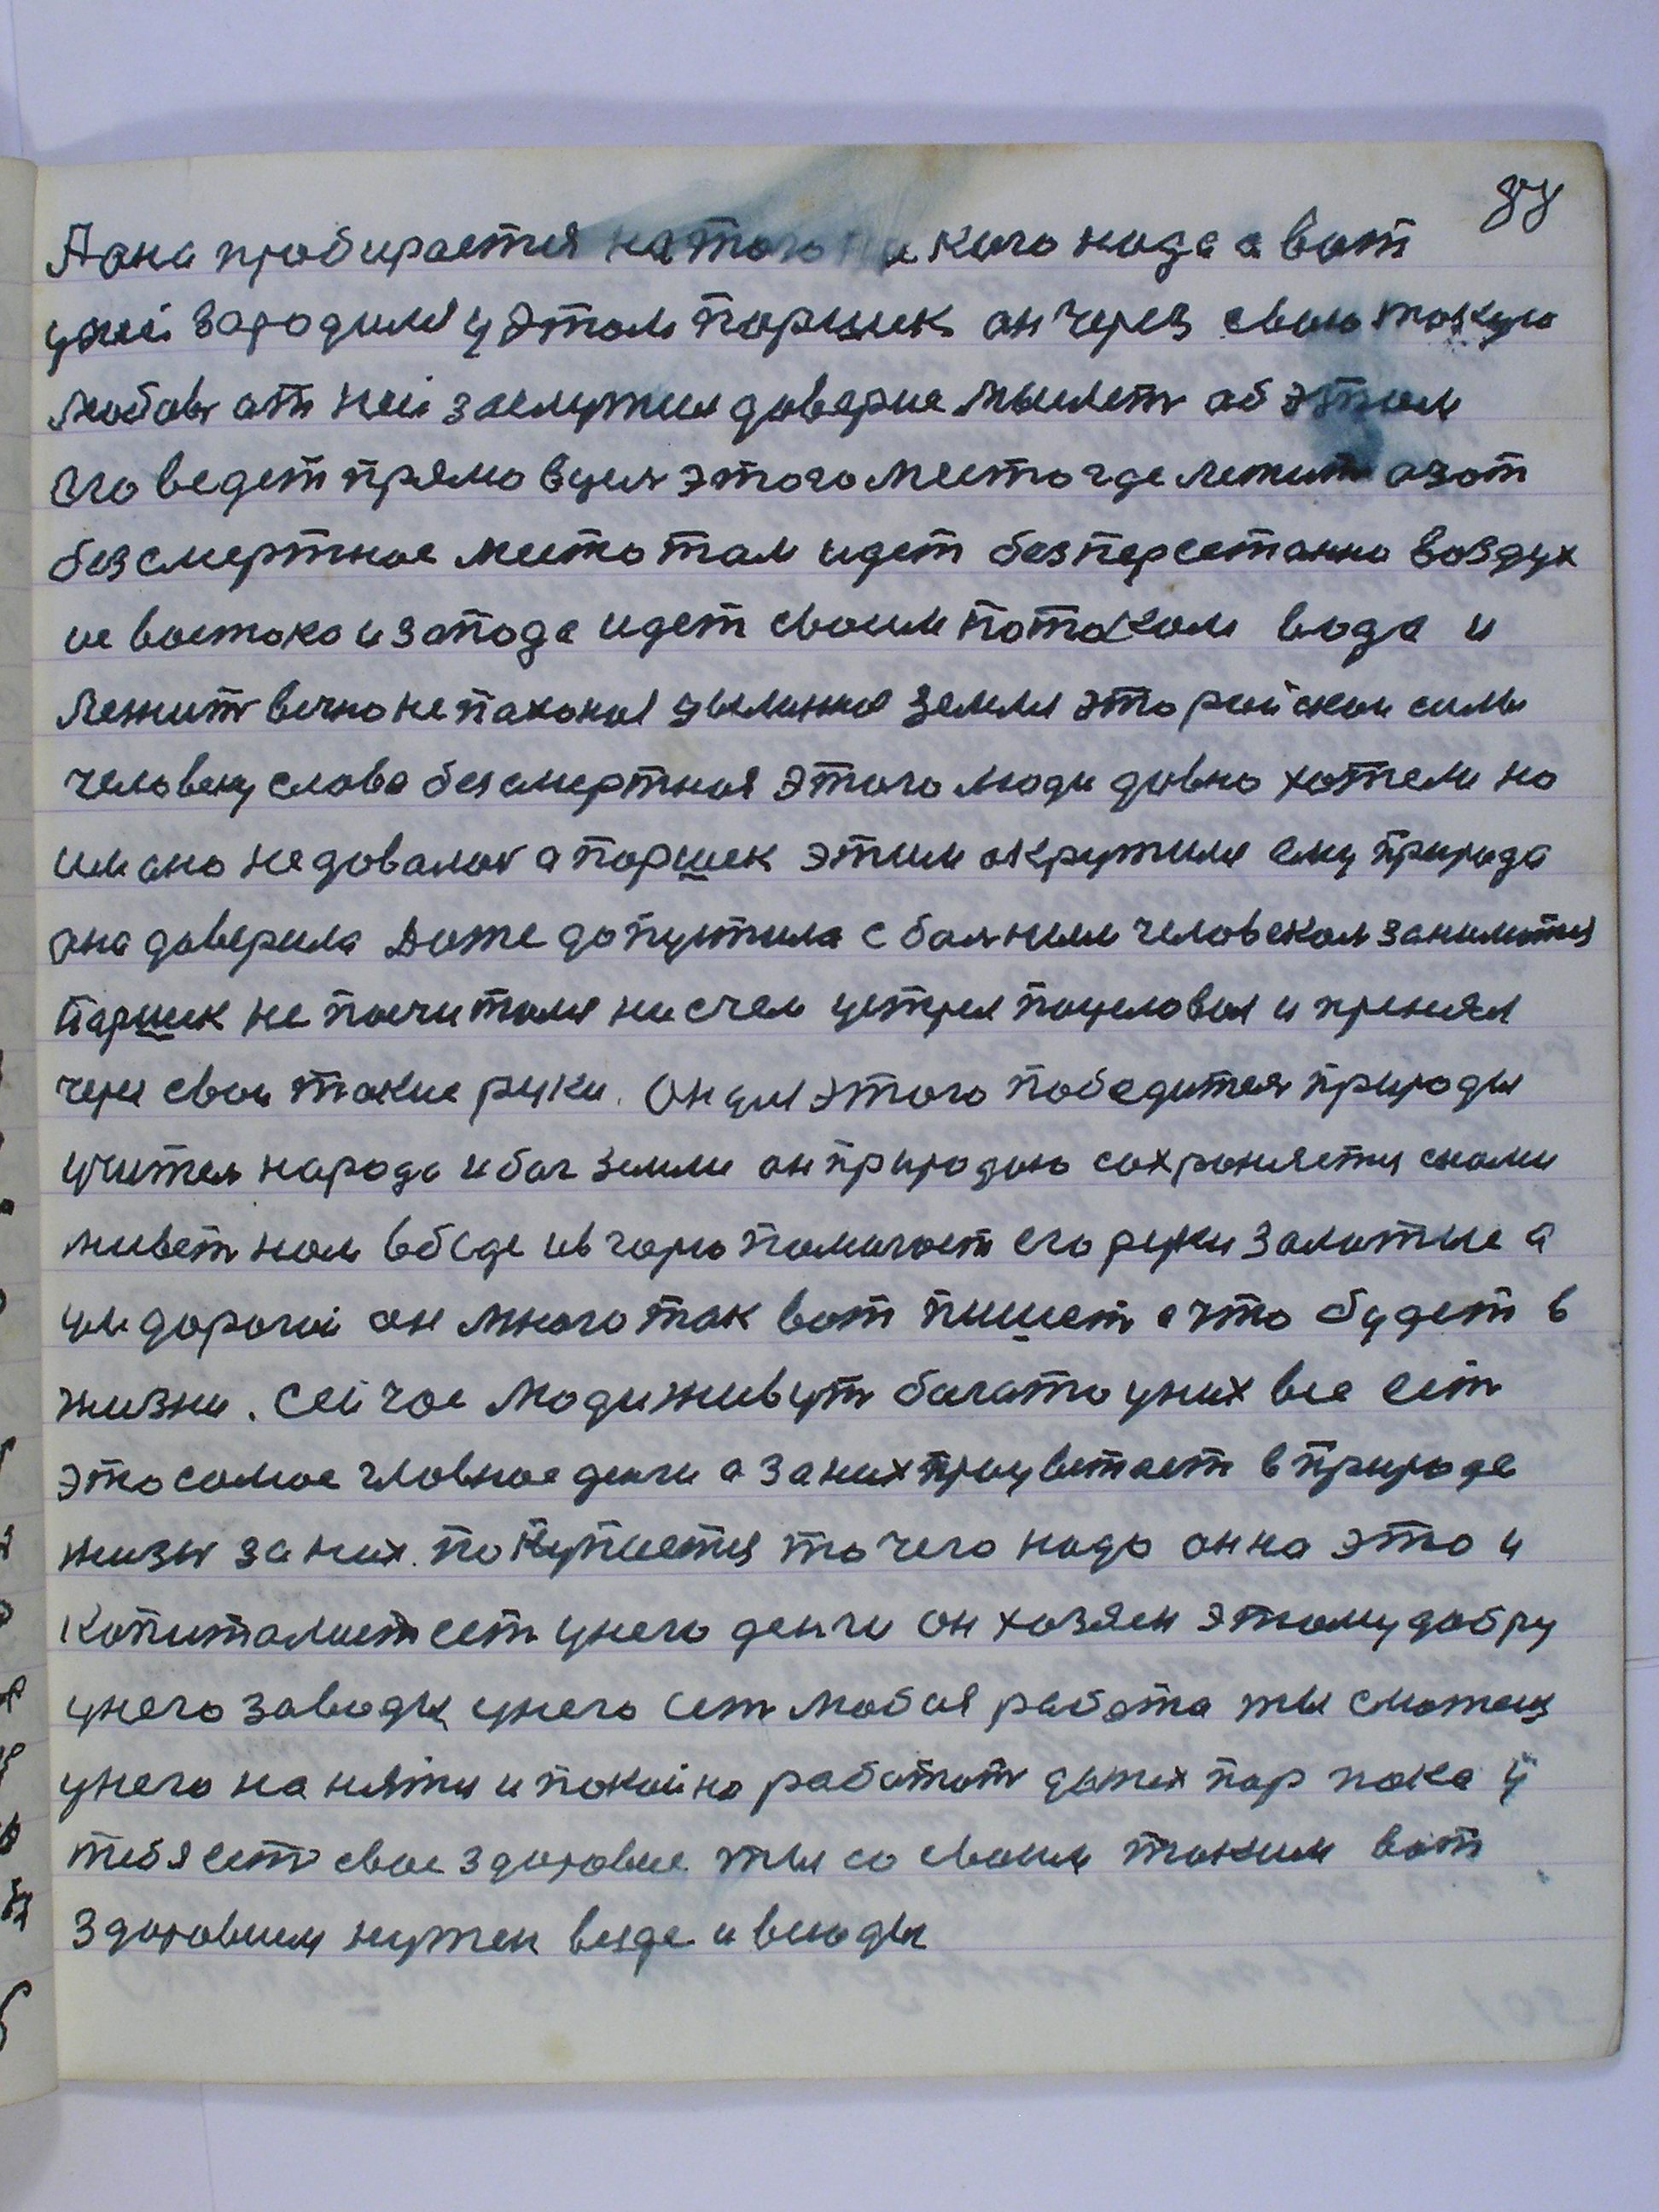 А она пробирается на того на кого надо а вот
у ней зародился у этом паршик он через свою такую
любовь от ней заслужил доверие мыслеть об этом
Его ведет прямо в цель этого место где лежит азот
безсмертное место там идет безперестанно воздух
ис востока и запода идет своим потоком вода и
лежить вечно не пахоная целинная земля это райскои силы
человеку слава безсмертная этого люди давно хотели но
им оно недовалось а паршек этим окружился ему природа
она доверила Даже допустила с больним человеком заниматься
паршек не посчитался ни с чем устрел поцеловал и принял
через свои такие руки. Он для этого победитель природы
учитель народа и бог земли он природою сохроняется с нами
живет нам в беде и в горю помогает его руки залотые а
ум дорогой он много так вот пишет а что будет в
жизни. Сейчас люди живут багато у них все есть
это самое гловное денги а за них процветает в природе
жизнь за них покупается то чего надо он на это и
копиталист есть у него денги он хозяен этому добру
у него заводы у него есть любая работа ты сможеш
у него на няться и покойно работать до тех пор пока у
тебя есть свое здоровие ты со своим таким вот
здоровием нужен везде и всюды